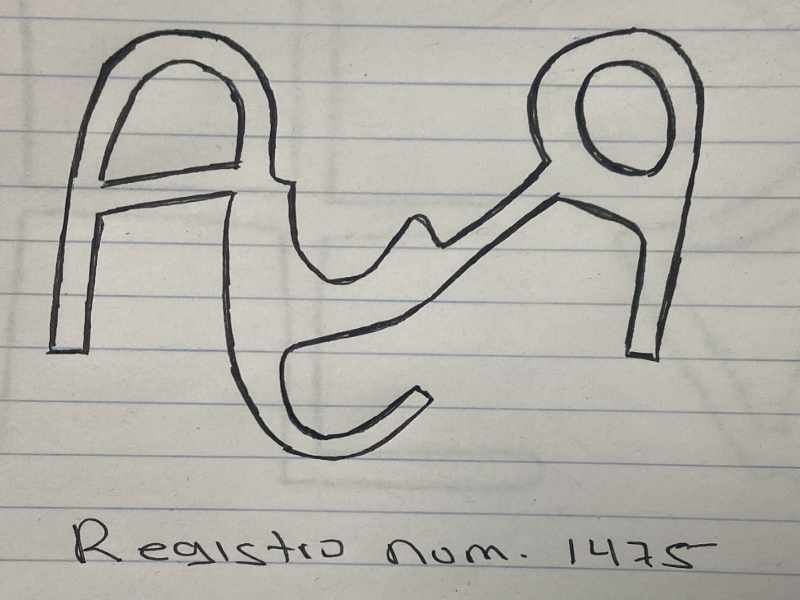 Registro num. 1475